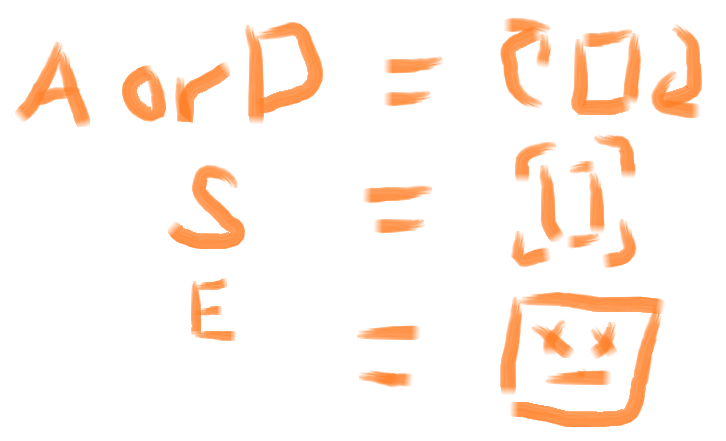 A or D =
S =
E =